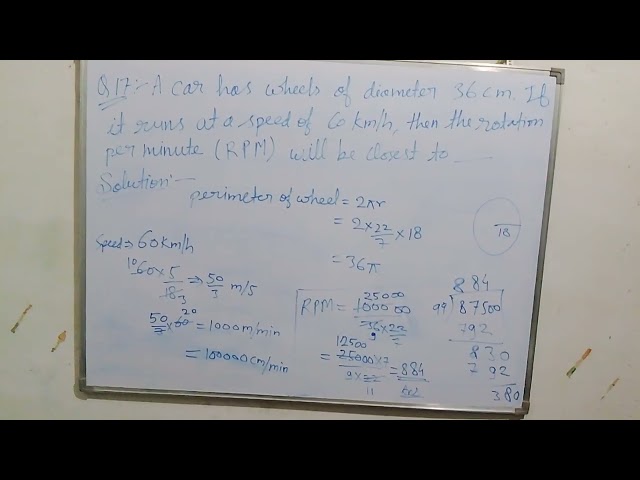 Q17:- A car has wheels of diameter 36 cm. If
it runs at a speed of 60 km/h, then the rotation
per minute (RPM) will be closest to ___
Solution:-
perimeter of wheel = 2πr
= 2 × 22/7 × 18
= 36π
18
Speed ⇒ 60 km/h
10 60 × 5/18 3 ⇒ 50/3 m/s
50/3 × 60 20 = 1000 m/min
= 100000 cm/min
RPM = 25000 100000/36 × 22/7 9
= 12500 25000 × 7/9 × 22 11 = 884
884
99) 87500
792
830
792
380